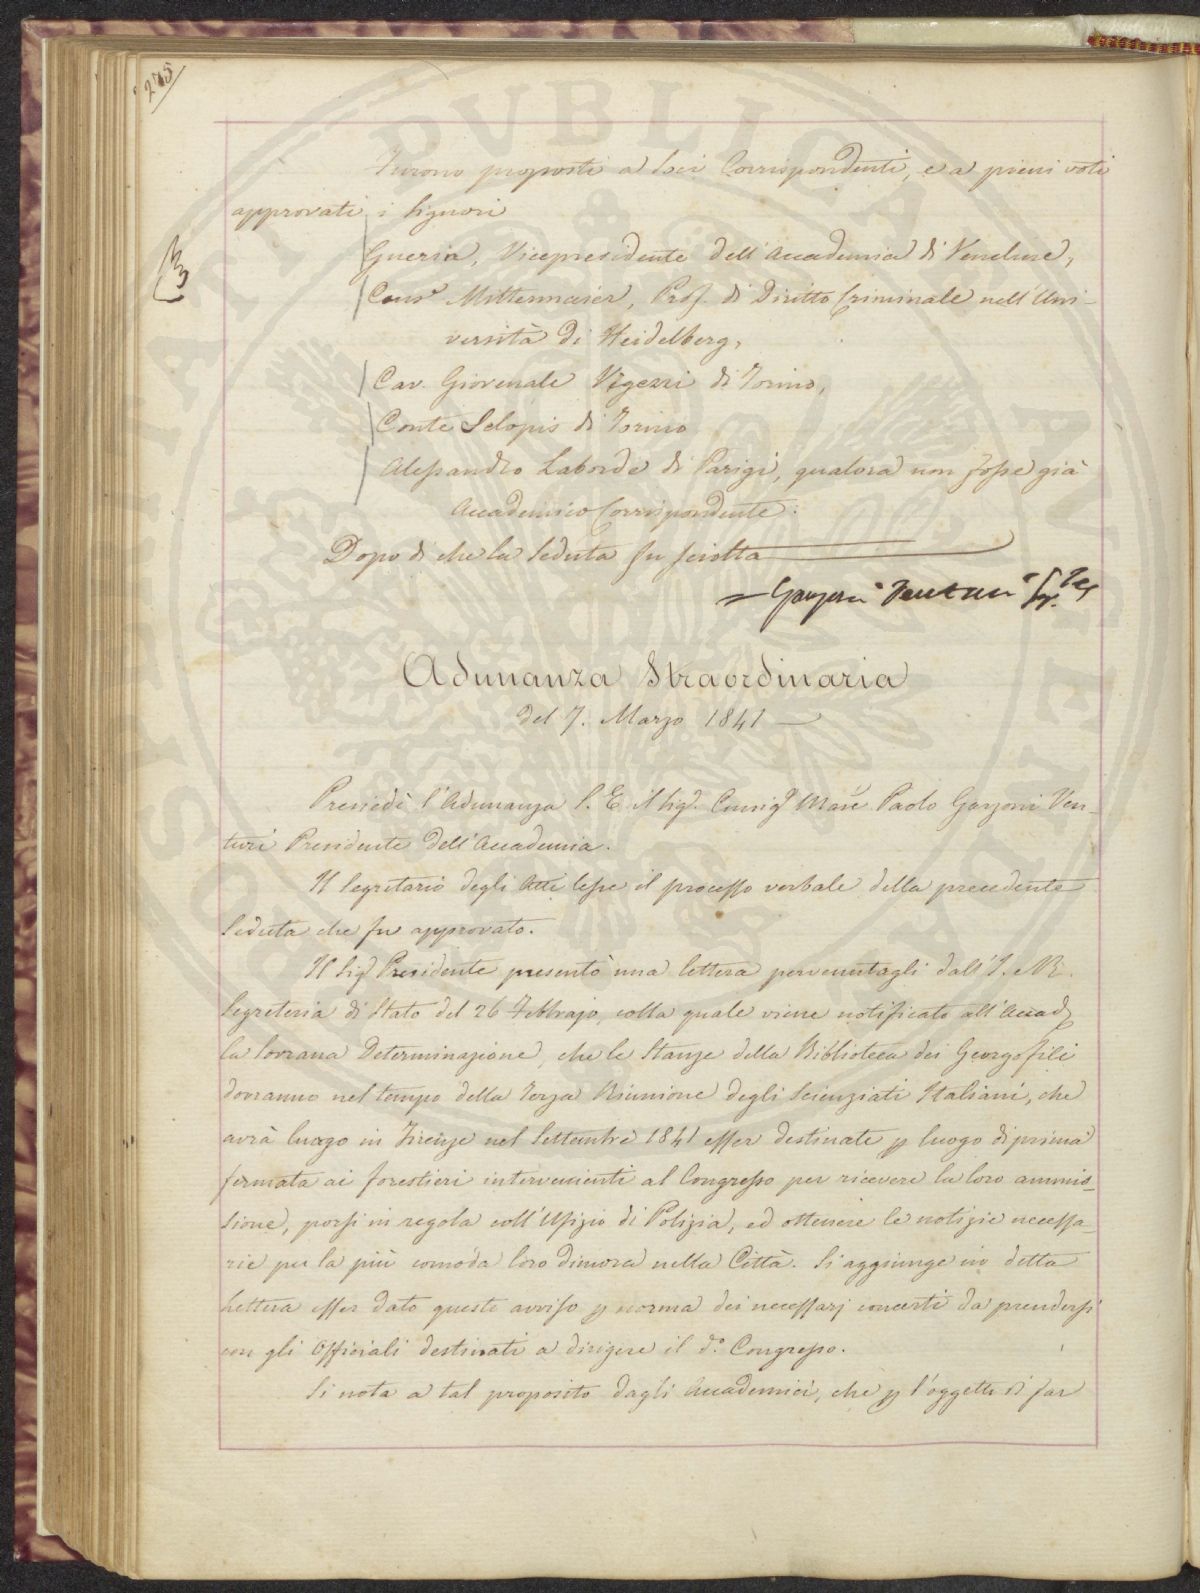 275
Furono proposti a Soci Corrispondenti, e a pieni voti
approvati i Signori
Guerin, Vicepresidente dell'Accademia di Vaucluse,
Cons.e Mittermaier, Prof. di Diritto Criminale nell'Uni-
versità di Heidelberg,
Cav. Giovenale Vegezzi di Torino,
Conte Sclopis di Torino
Alessandro Laborde di Parigi, qualora non fosse già
Accademico Corrispondente.
Dopo di che la Seduta fu sciolta
Garzoni Venturi
Adunanza Straordinaria
del 7. Marzo 1841
Presiedè l'Adunanza S. E. il Sig. Consig. March. Paolo Garzoni Ven-
turi Presidente dell'Accademia.
Il Segretario degli Atti lesse il processo verbale della precedente
Seduta che fu approvato.
Il Sig. Presidente presentò una lettera pervenutagli dall'I. e R.
Segreteria di Stato del 26 Febbrajo, colla quale viene notificato all'Accad.
la Sovrana Determinazione, che le Stanze della Biblioteca dei Georgofili
dovranno nel tempo della Terza Riunione degli Scienziati Italiani, che
avrà luogo in Firenze nel Settembre 1841 esser destinate p luogo di prima
fermata ai forestieri intervenienti al Congresso per ricevere la loro ammis-
sione, porsi in regola coll'Ufizio di Polizia, ed ottenere le notizie necessa-
rie per la più comoda loro dimora nella Città. Si aggiunge in detta
Lettera esser dato questo avviso p norma dei necessarj concerti da prendersi
con gli Officiali destinati a dirigere il d.o Congresso.
Si nota a tal proposito dagli Accademici, che p l'oggetto di far
PUBLICA